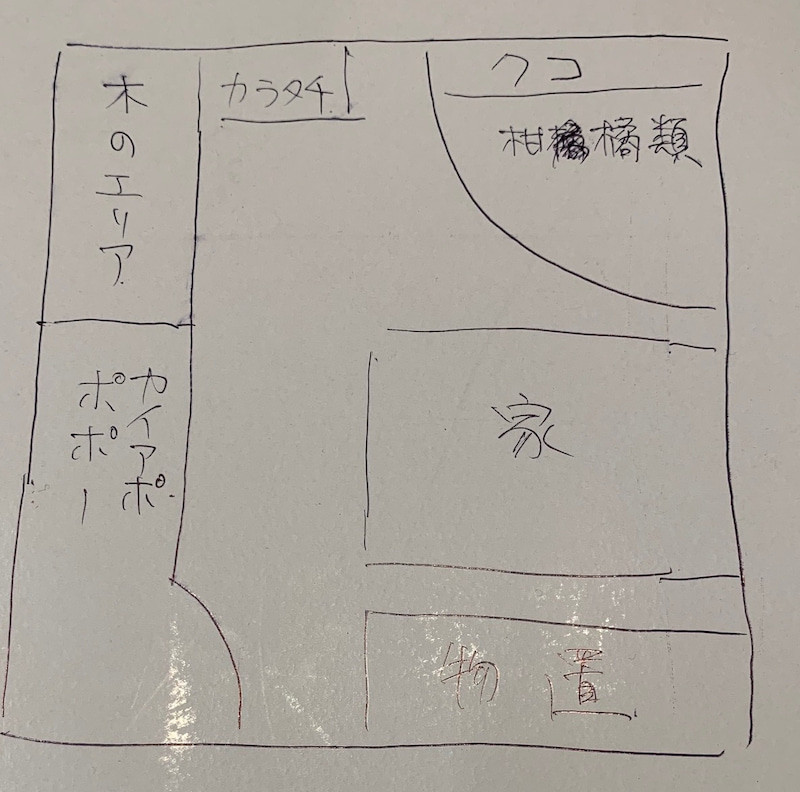 木のエリア
カラタチ
クコ
柑橘類
家
カイアポ
ポポー
物置